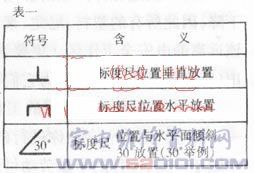 表一
符号 含 义
⊥ 标度尺位置垂直放置
⊓ 标度尺位置水平放置
∠30° 标度尺 位置与水平面倾斜
30°放置(30°举例)